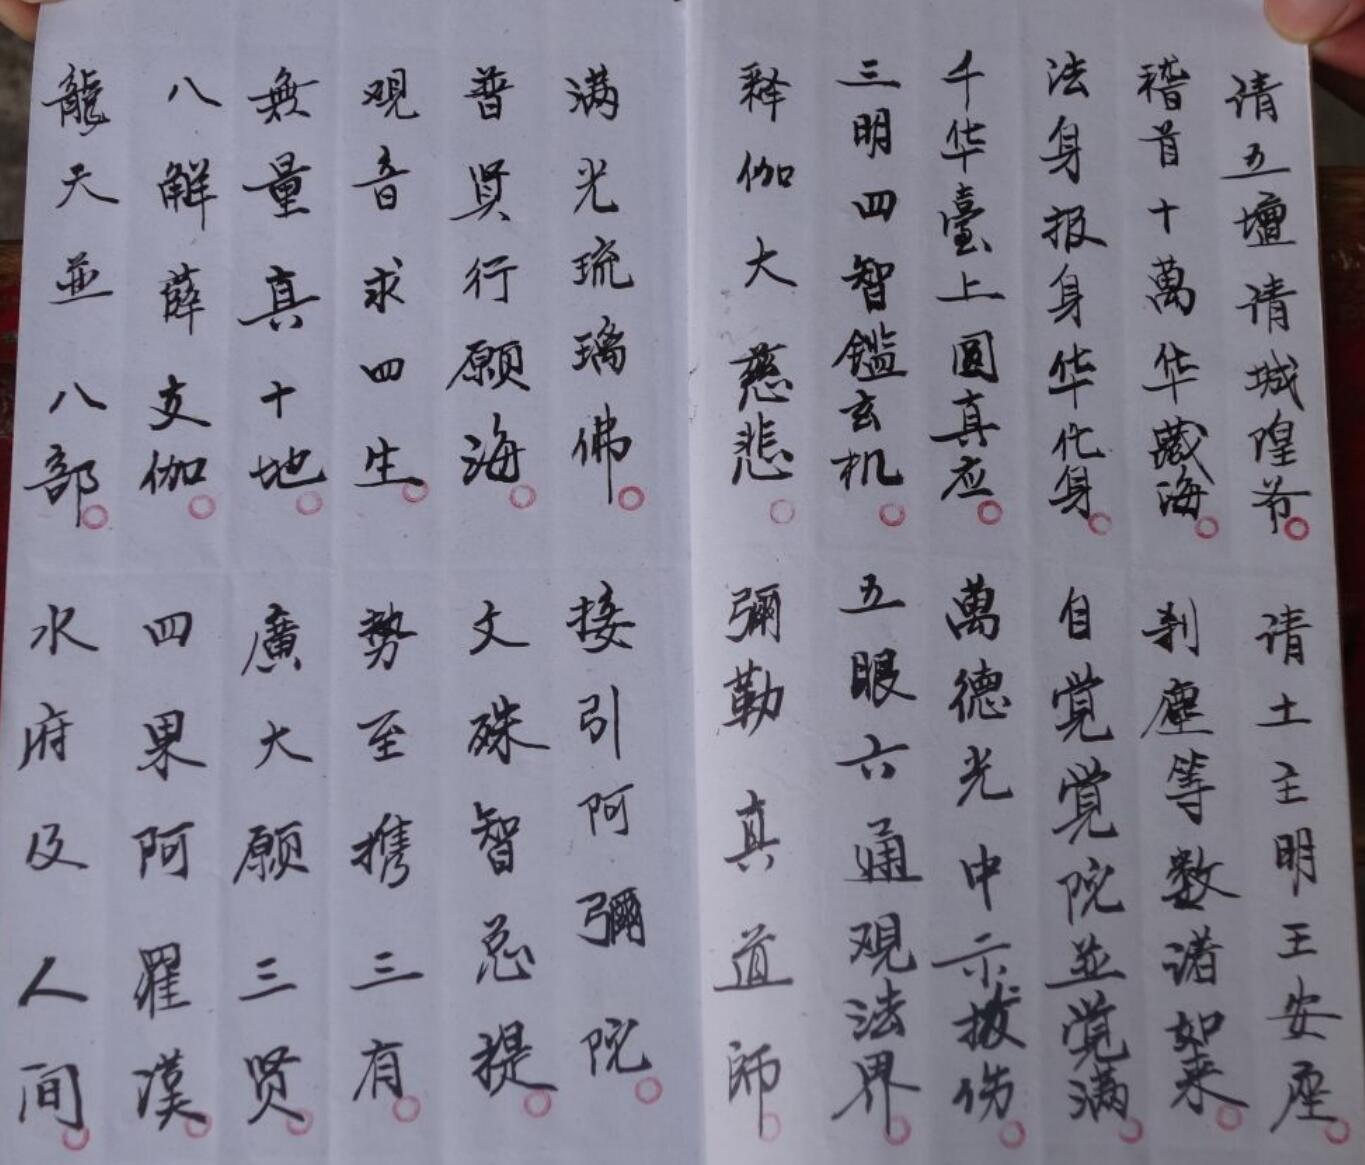 请五壇请城隍爷。请土主明王安座。
稽首十萬华藏海。刹塵等数诸如来。
法身报身华化身。自觉觉院並觉满。
千华臺上圆真应。萬德光中示拔伤。
三明四智鑑玄机。五眼六通观法界。
释伽大慈悲。彌勒真道師。
满光琉璃佛。接引阿彌院。
普贤行愿海。文殊智总提。
观音求四生。勢至携三有。
無量真十地。廣大愿三贤。
八解薜支伽。四果阿羅漢。
龍天並八部。水府及人间。